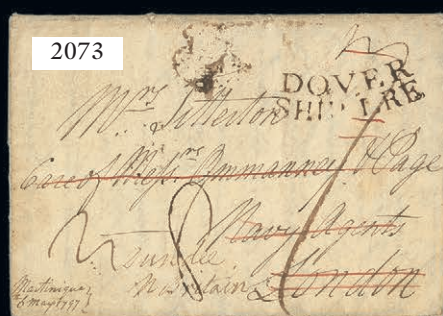 2073
DOVER
SHIP LRE
Mrs. Sitterton
Care of Messrs. Ommanney & Page
Navy Agents
London
Dundee
N Britain
Martinique
6 May 1797